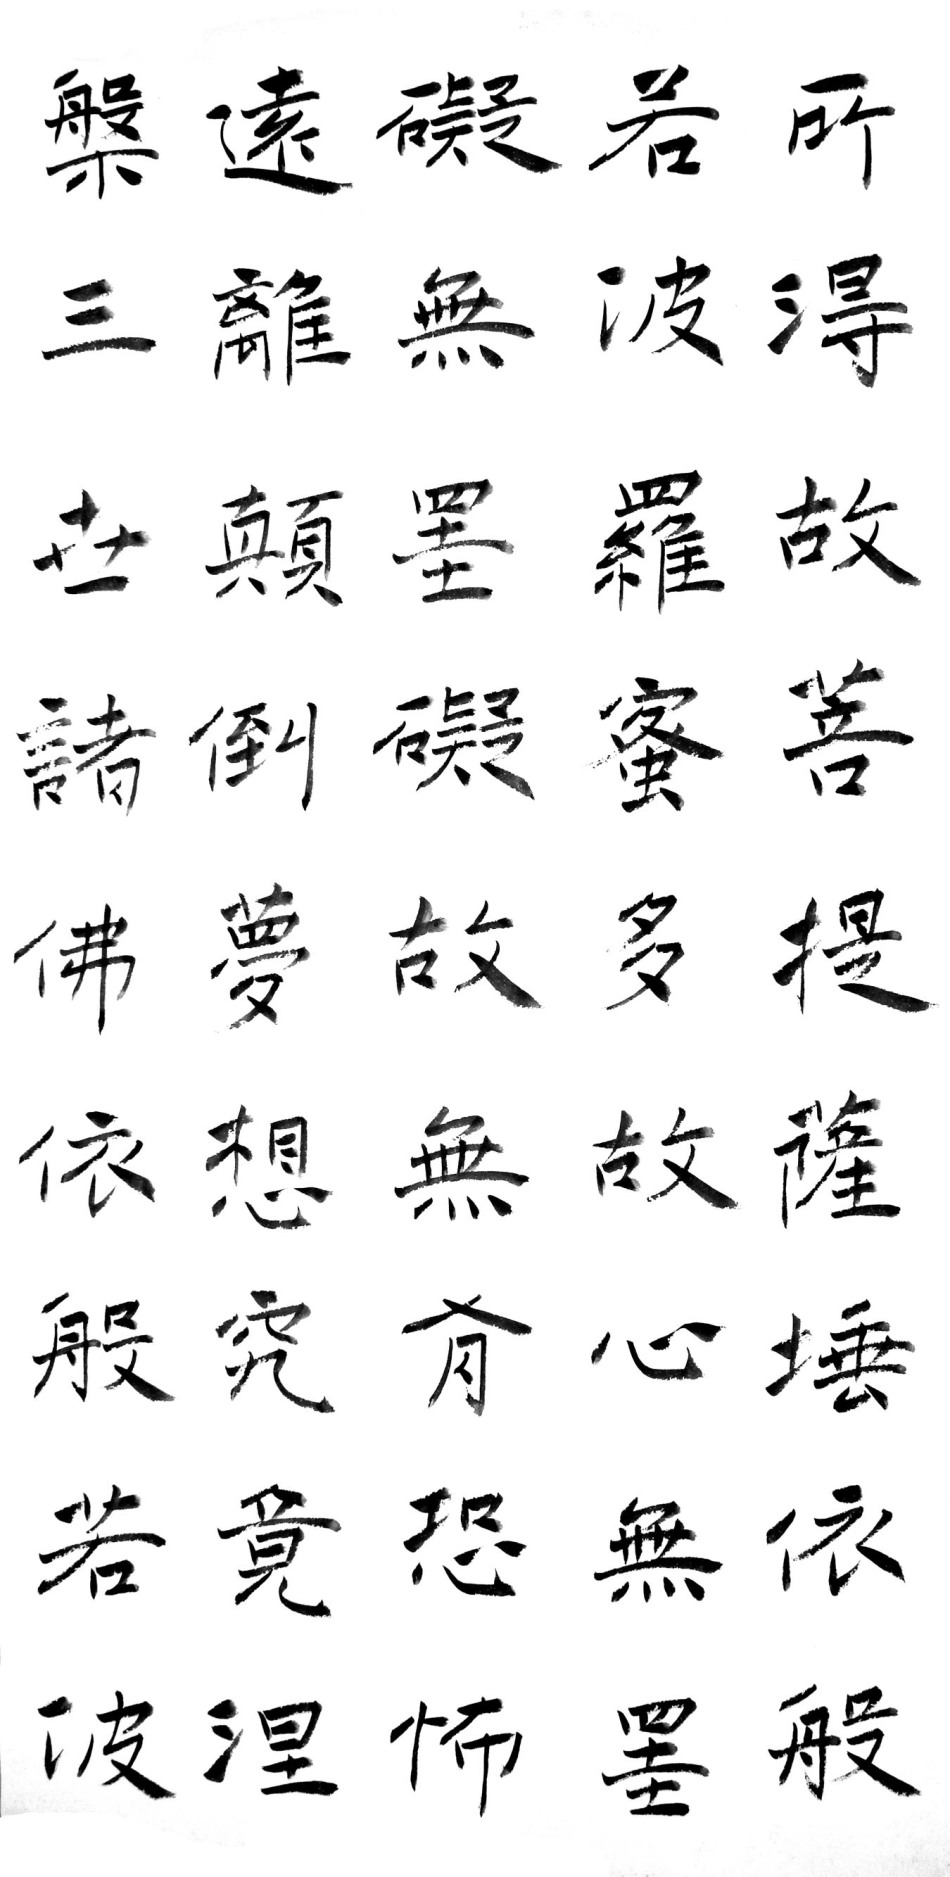 所得故菩提薩埵依般
若波羅蜜多故心無罣
礙無罣礙故無有恐怖
遠離顛倒夢想究竟涅
槃三世諸佛依般若波